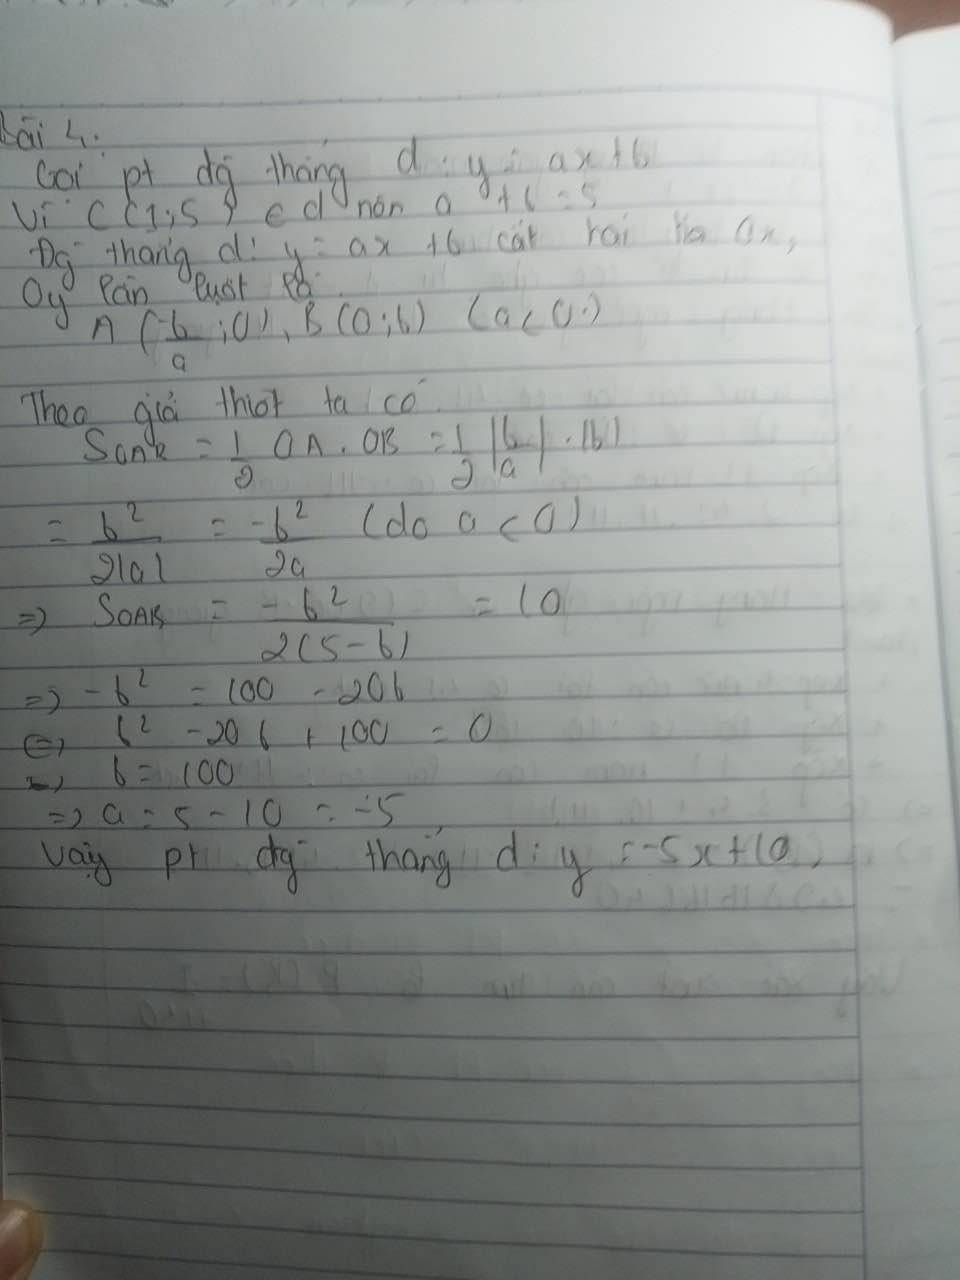 Bài 4.
Gọi pt đg thẳng d: y = ax + b
Vì C(1;5) ∈ d nên a + b = 5
Đg thẳng d: y = ax + b cắt hai tia Ox,
Oy lần lượt tại
A(-b/a; 0), B(0; b) (a < 0.)
Theo giả thiết ta có
SOAB = 1/2 OA. OB = 1/2 |b/a|. |b|
= b²/2|a| = -b²/2a (do a < 0)
=> SOAB = -b²/2(5-b) = 10
=> -b² = 100 - 20b
<=> b² - 20b + 100 = 0
=> b = 100
=> a = 5 - 10 = -5
Vậy pt đg thẳng d: y = -5x + 10.